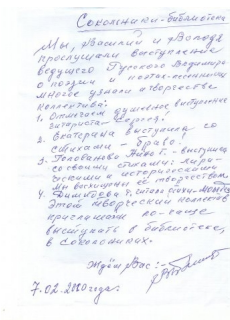 Сокольники-библиотека
Мы, Василий и Володя
прослушали выступление
ведущего Гурского Владимира
о поэзии и поэтах-песенниках
многое узнали о творчестве
коллектива:
1. Отмечаем душевное выступление
гитариста Сергея!
2. Екатерина выступила со
стихами - браво!
3. Голованова Нина Г. - выступила
со своими стихами: лири-
ческими и историческими
Мы восхищены её творчеством.
4. стихи
Этот творческий коллектив
приглашаем по-чаще
выступать в библиотеке,
в Сокольниках.
Ждём Вас:-
7.02.2020 года.